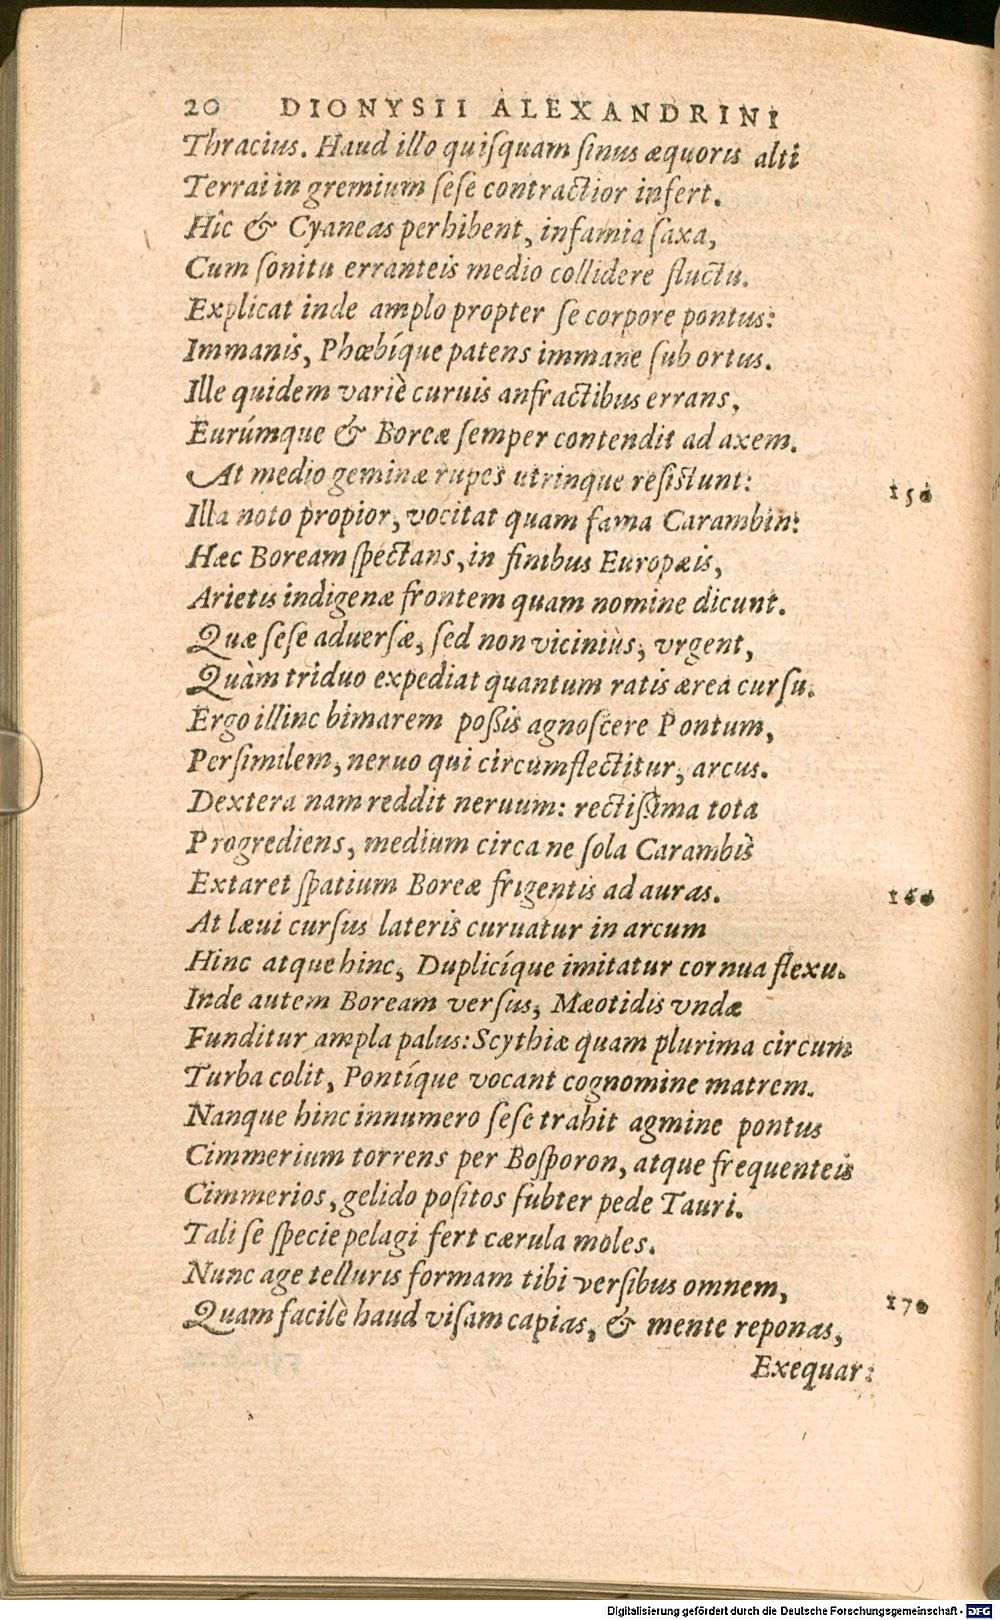 20 DIONYSII ALEXANDRINI
Thracius. Haud illo quiſquam ſinus æquoris alti
Terrai in gremium ſeſe contractior infert.
Hîc & Cyaneas perhibent, infamia ſaxa,
Cum ſonitu erranteis medio collidere fluctu.
Explicat inde amplo propter ſe corpore pontus:
Immanis, Phœbíque patens immane ſub ortus.
Ille quidem variè curuis anfractibus errans,
Eurúmque & Boreæ ſemper contendit ad axem.
At medio geminæ rupes utrinque reſiſtunt: 150
Illa noto propior, vocitat quam fama Carambin:
Hæc Boream ſpectans, in finibus Europæis,
Arietis indigenæ frontem quam nomine dicunt.
Quæ ſeſe aduerſæ, ſed non viciniùs, vrgent,
Quàm triduo expediat quantum ratis ærea curſu.
Ergo illinc bimarem poßis agnoſcere Pontum,
Perſimilem, neruo qui circumflectitur, arcus.
Dextera nam reddit neruum: rectißima tota
Progrediens, medium circa ne ſola Carambis
Extaret ſpatium Boreæ frigentis ad auras. 160
At læui curſus lateris curuatur in arcum
Hinc atque hinc, Duplicíque imitatur cornua flexu.
Inde autem Boream verſus, Mæotidis vndæ
Funditur ampla palus: Scythiæ quam plurima circum
Turba colit, Pontíque vocant cognomine matrem.
Nanque hinc innumero ſeſe trahit agmine pontus
Cimmerium torrens per Boſporon, atque frequenteis
Cimmerios, gelido poſitos ſubter pede Tauri.
Tali ſe ſpecie pelagi fert cærula moles.
Nunc age telluris formam tibi verſibus omnem, 170
Quam facilè haud viſam capias, & mente reponas,
Exequar:
Digitalisierung gefördert durch die Deutsche Forschungsgemeinschaft - DFG